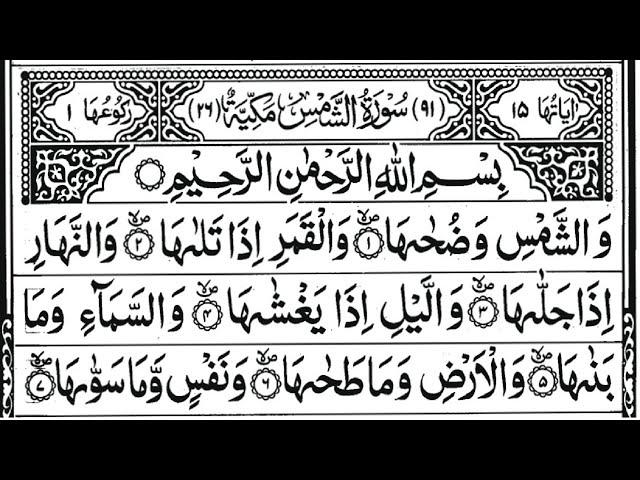 اٰيَاتُهَا ١٥ (٩١) سُوْرَةُ الشَّمْسِ مَكِّيَّةٌ (٢٦) رُكُوْعُهَا ١
بِسْمِ اللّٰهِ الرَّحْمٰنِ الرَّحِيْمِ
وَالشَّمْسِ وَضُحٰىهَا ۙ١ وَالْقَمَرِ اِذَا تَلٰىهَا ۙ٢ وَالنَّهَارِ
اِذَا جَلّٰىهَا ۙ٣ وَالَّيْلِ اِذَا يَغْشٰىهَا ۙ٤ وَالسَّمَآءِ وَمَا
بَنٰىهَا ۙ٥ وَالْاَرْضِ وَمَا طَحٰىهَا ۙ٦ وَنَفْسٍ وَّمَا سَوّٰىهَا ۙ٧